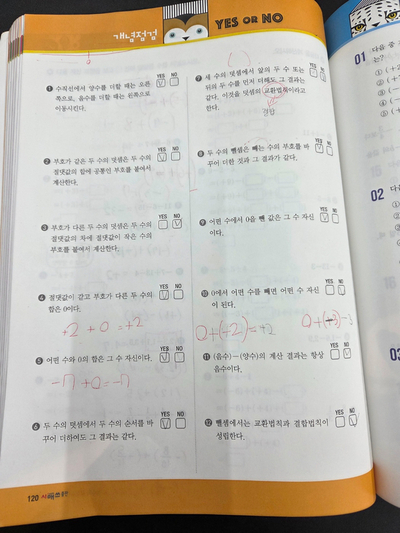 개념점검
YES OR NO
YES NO
❶ 수직선에서 양수를 더할 때는 오른
쪽으로, 음수를 더할 때는 왼쪽으로
이동시킨다.
YES NO
❷ 부호가 같은 두 수의 덧셈은 두 수의
절댓값의 합에 공통인 부호를 붙여서
계산한다.
YES NO
❸ 부호가 다른 두 수의 덧셈은 두 수의
절댓값의 차에 절댓값이 작은 수의
부호를 붙여서 계산한다.
YES NO
❹ 절댓값이 같고 부호가 다른 두 수의
합은 0이다.
+2 + 0 = +2
YES NO
❺ 어떤 수와 0의 합은 그 수 자신이다.
-7 + 0 = -7
YES NO
❻ 두 수의 덧셈에서 두 수의 순서를 바
꾸어 더하여도 그 결과는 같다.
( )
YES NO
❼ 세 수의 덧셈에서 앞의 두 수 또는
뒤의 두 수를 먼저 더해도 그 결과는
같다. 이것을 덧셈의 교환법칙이라고
한다.
결합
YES NO
❽ 두 수의 뺄셈은 빼는 수의 부호를 바
꾸어 더한 것과 그 결과가 같다.
YES NO
❾ 어떤 수에서 0을 뺀 값은 그 수 자신
이다.
YES NO
❿ 0에서 어떤 수를 빼면 어떤 수 자신
이 된다.
0+(+2)=+2
YES NO
⓫ (음수)-(양수)의 계산 결과는 항상
음수이다.
YES NO
⓬ 뺄셈에서는 교환법칙과 결합법칙이
성립한다.
120
01 다음 중
는?
① (+
② (
③ (
④ (
⑤ (
02 다음
①
②
③
④
⑤
03